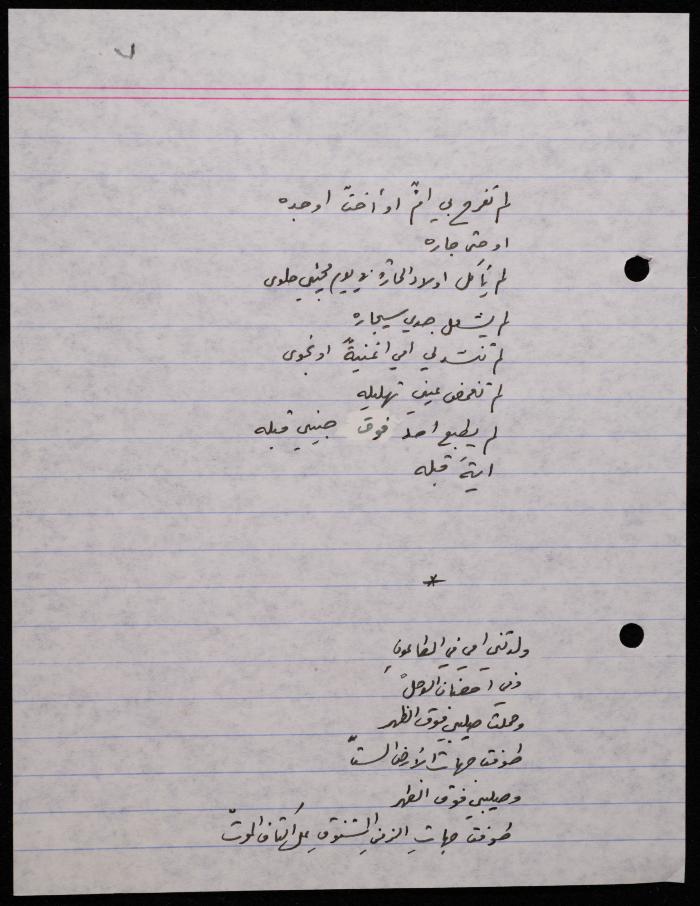 لم تفرح بي امٌّ او أختٌ او جده
او حتى جاره
لم يأكل اولاد الحارة يوم مجيئي حلوى
لم يشعل جدي سيجاره
لم تنشد لي امي اغنيةً او نجوى
لم تغمض عيني تهليله
لم يطبع احد فوق جبيني قبله
ايةَ قبله
*
ولدتني امي في الطاعونِ
وفي احضان الوحل
وحملت صليبي فوق الظهر
طوفت جهات الأرض الستّ
وصليبي فوق الظهر
طوفت جهاتِ الزمنِ المشنوقِ على اكتاف الموتّ